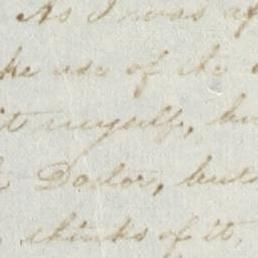 As I was
use of the
it myself, bu
Doctor, but
thinks of it,